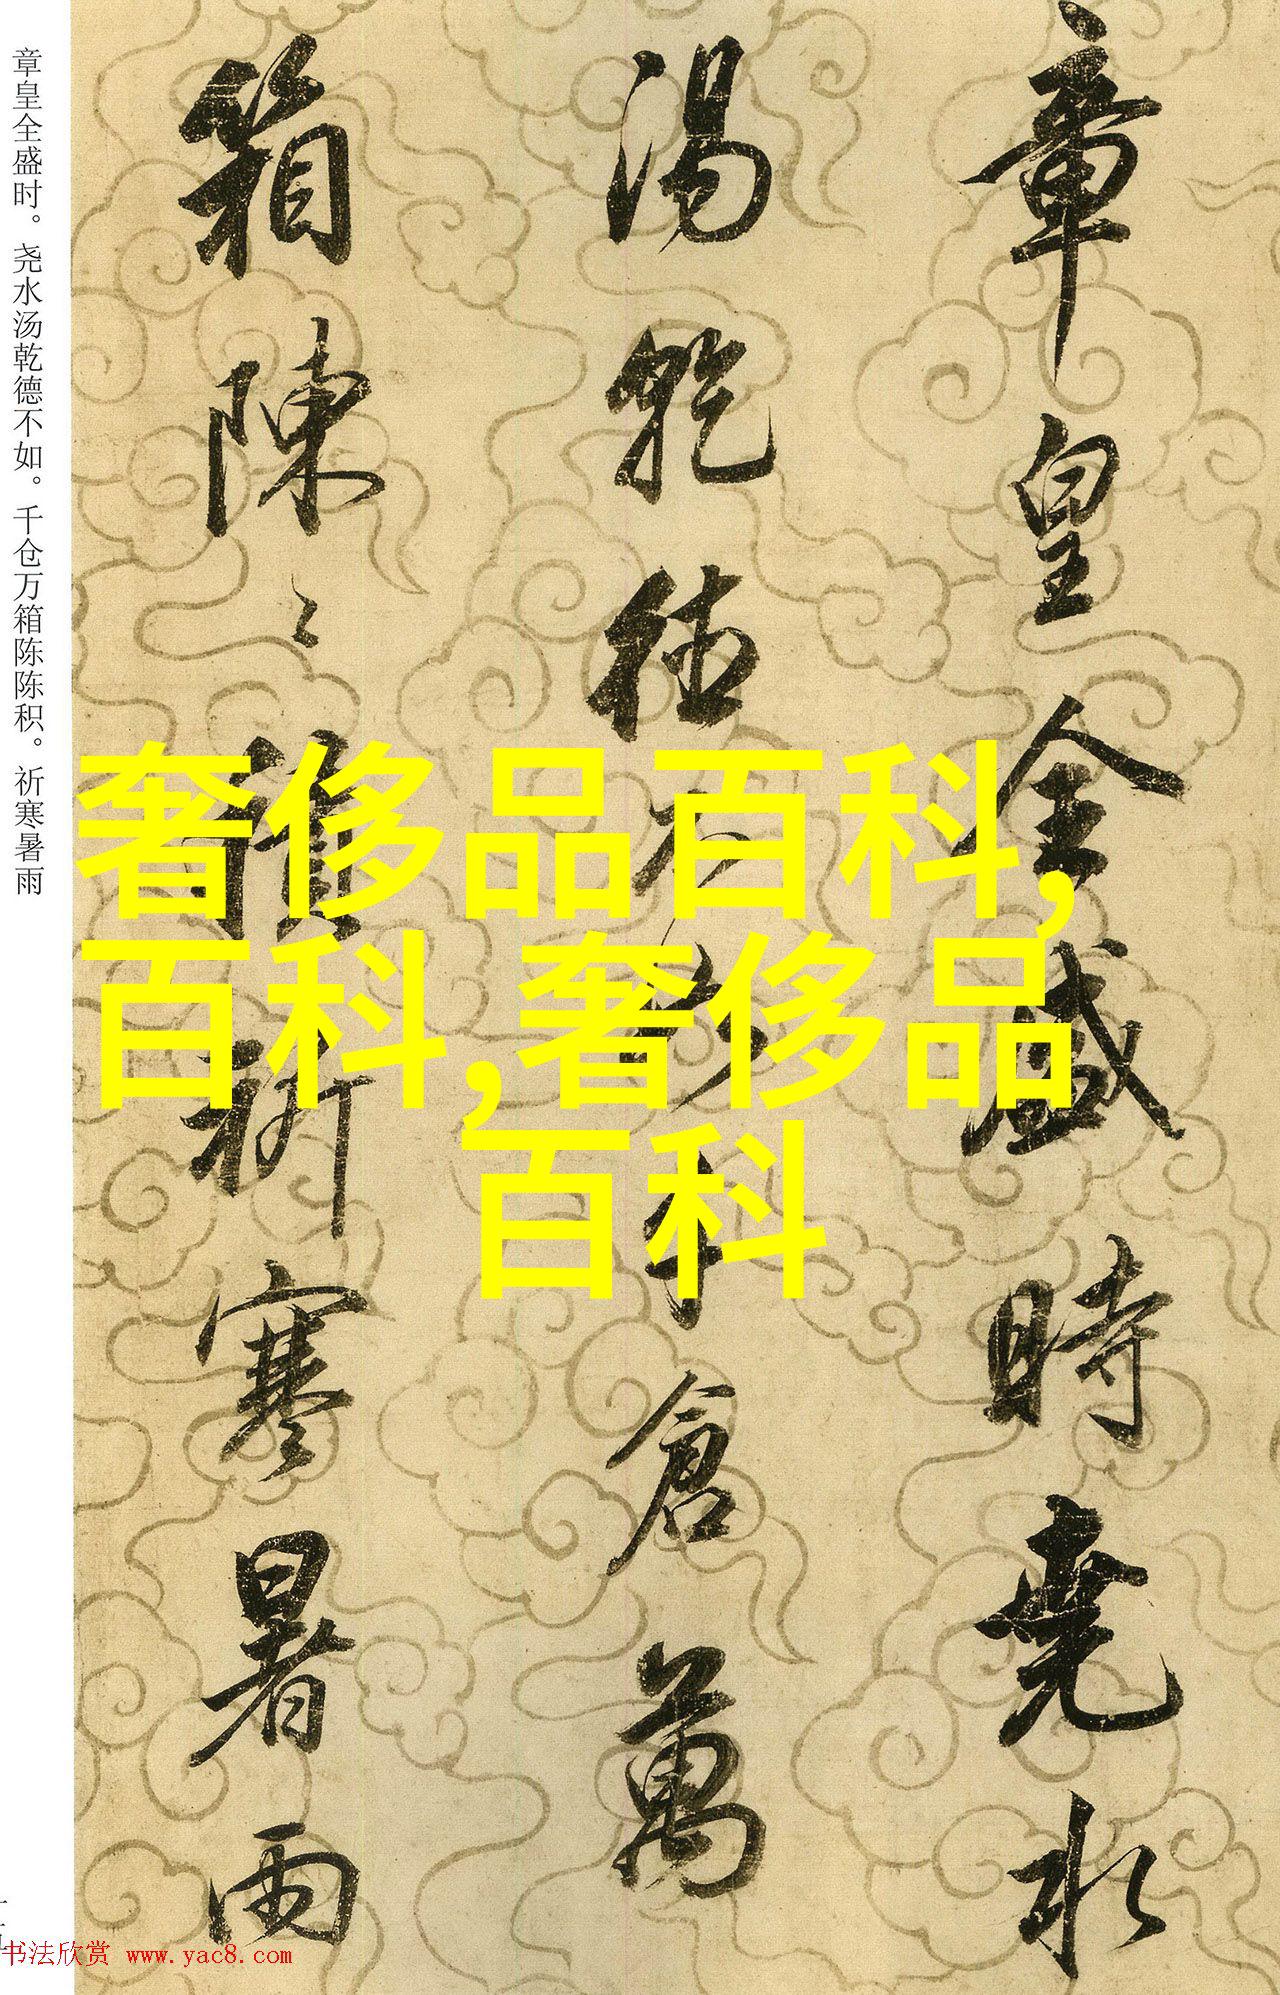 章皇全盛時堯水
湯乾德不如千倉萬
箱陳〻積祈寒暑雨
章皇全盛时。尧水汤乾德不如。千仓万箱陈陈积。祈寒暑雨
奢侈品百科,
百科,奢侈品
百科
书法欣赏 www.yac8.com